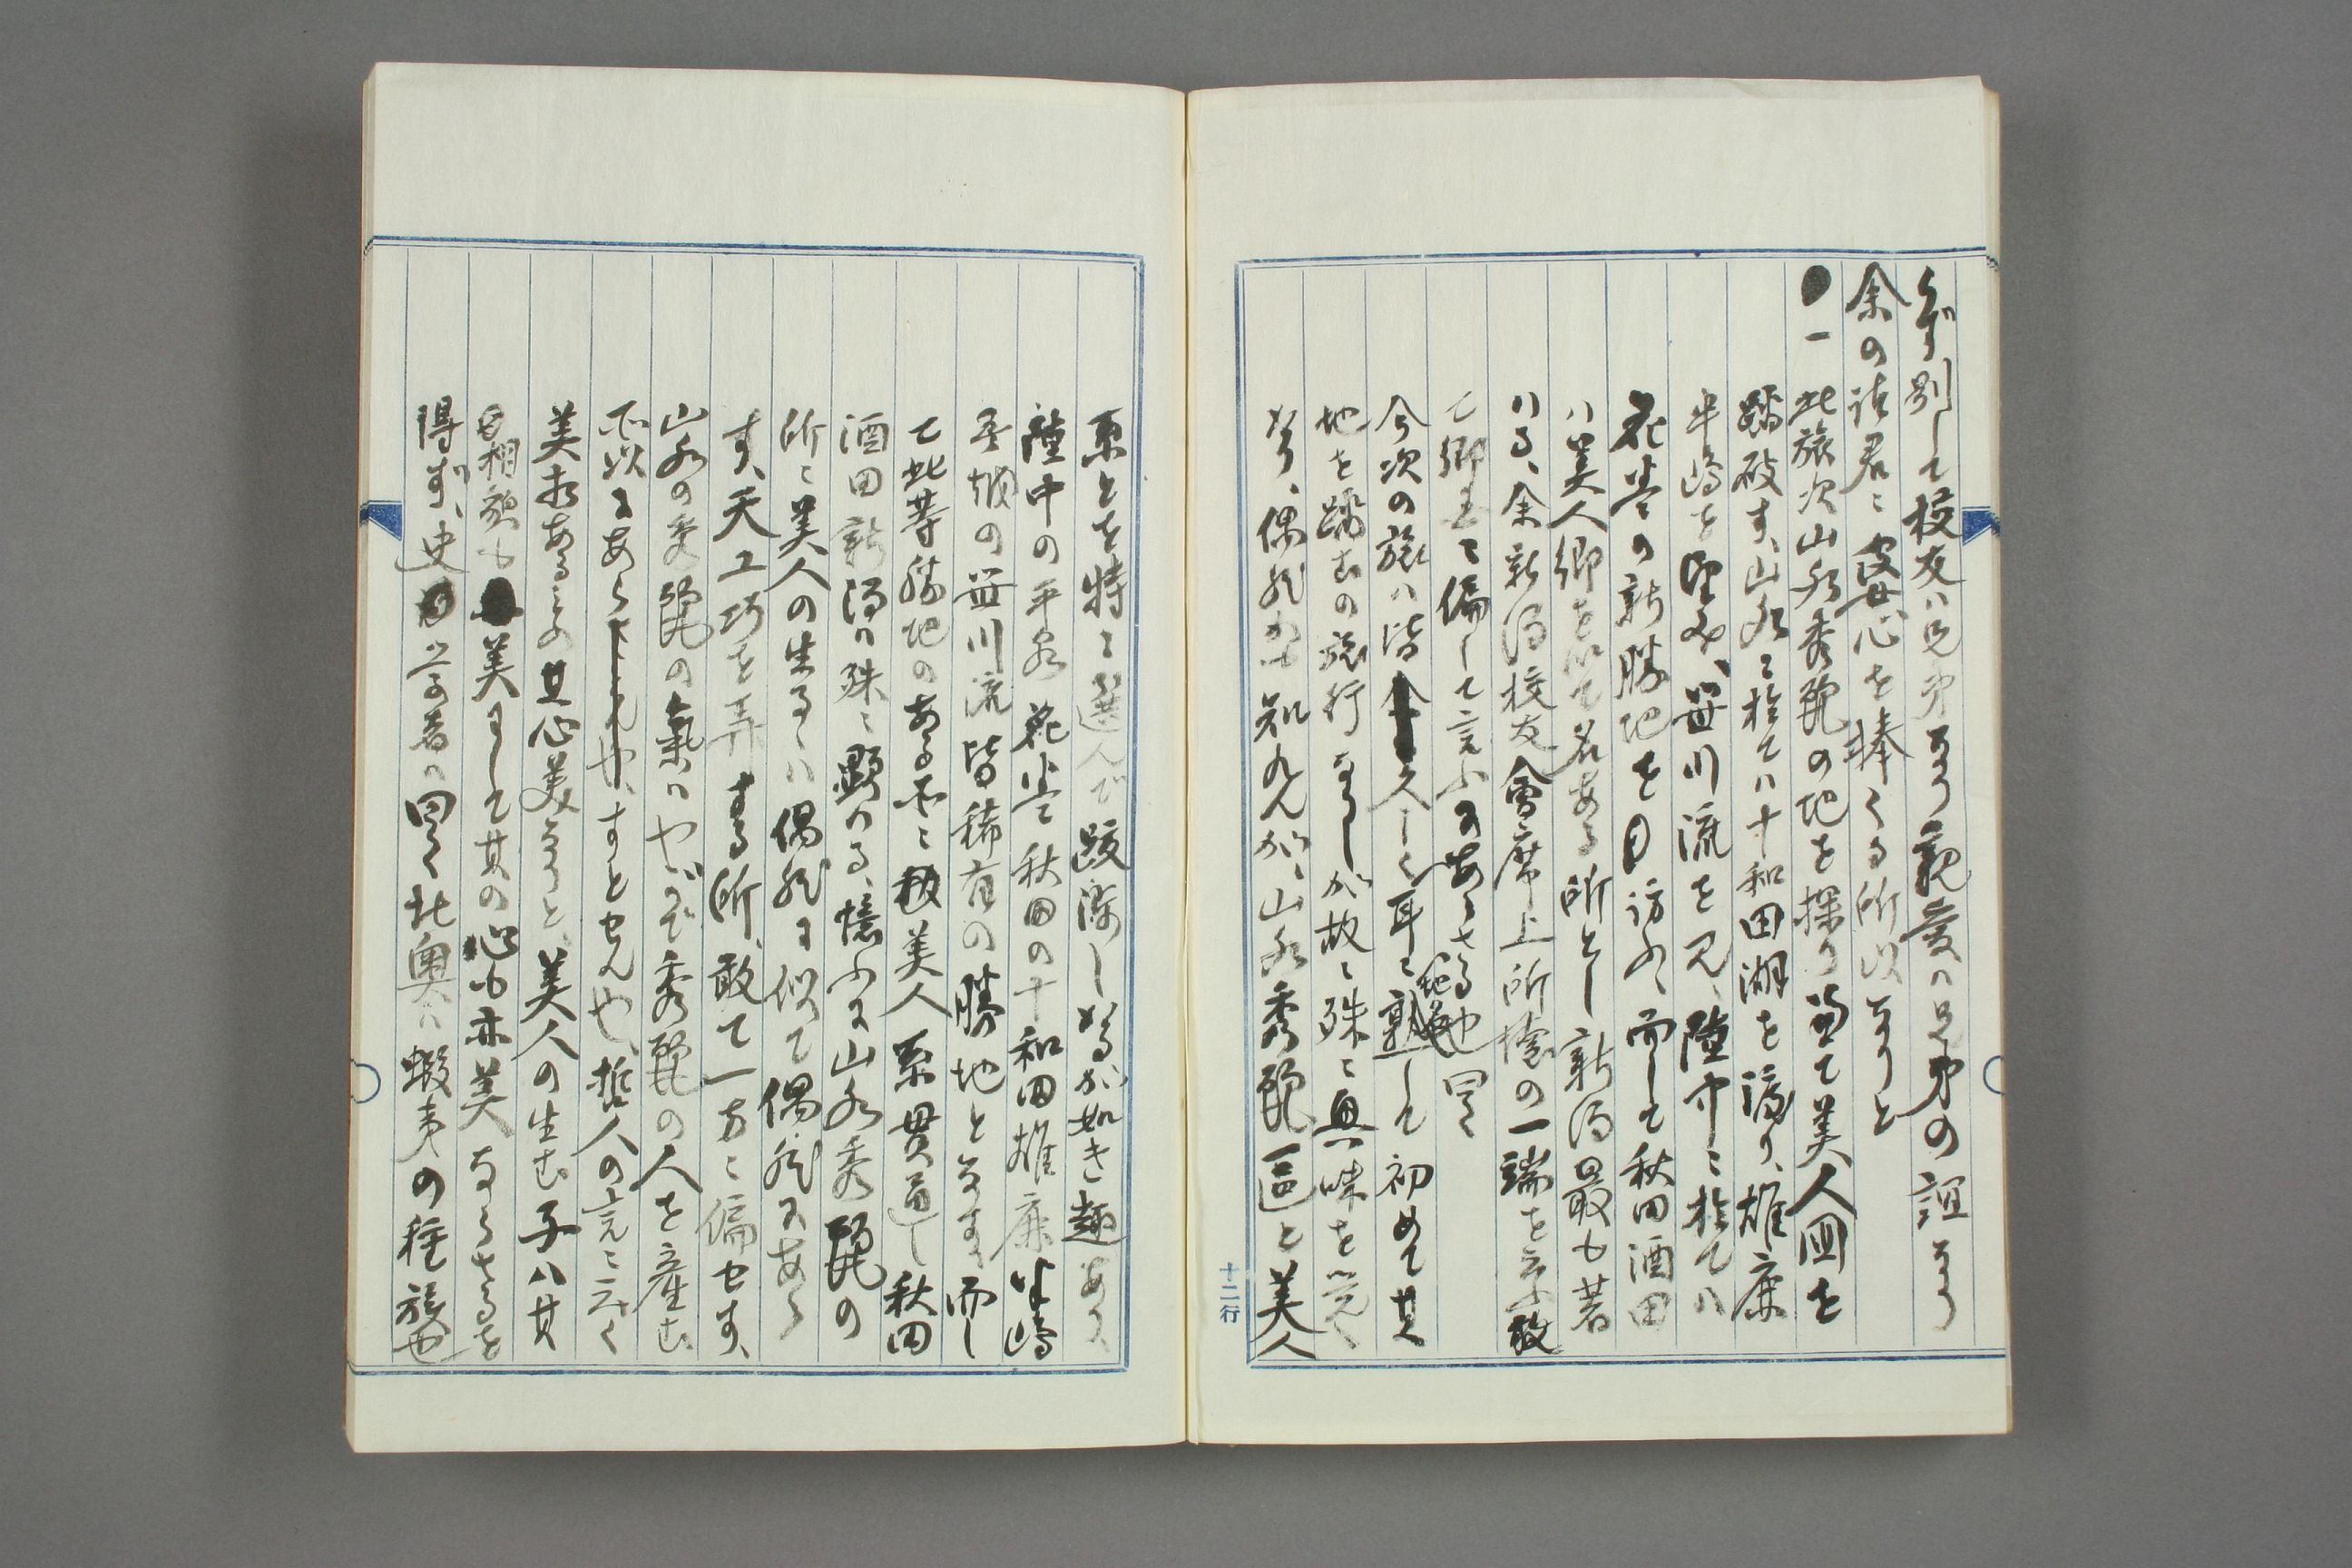 らず、別して校友ハ兄弟なり親愛ハ兄弟の誼なり
余の諸君に蜜心を捧くる所以なりと
一此旅次山水秀麗の地を探り兼て美人国を
踏破す、山水に於てハ十和田湖を渡り、雄鹿
半嶋を望み、笹川流を見、陸中に於てハ
花巻の新勝地を目訪ふ、而して秋田酒田
ハ美人郷を以て名ある所とし新潟最も著
ハる、余新潟校友會席上所懐の一端を
て郷土に偏して言ふにあらさる也曰く
今次の旅ハ皆久しく耳に熟して初めて其
地を踏むの旅行なりしが故に殊に興味を覚く
なり、偶然か知れんが、山水秀麗區と美人
系とを特に選んで跋渉しけるが如き趣あり、
陸中の平泉花巻秋田の十和田雄鹿半嶋
吾越の笹川流皆稀有の勝地となす、而し
て此等勝地のある所に美人系貫通し秋田
酒田新潟ハ殊に顕ハる、憶ふに山水秀麗の
所に美人の生るゝハ偶然に似て偶然にあら
す、天工巧を弄する所、敢て一方に偏せす、
山水の秀麗の氣ハやがて秀麗の人を産む
所以にあらすとせんや、哲人の言に云く
美相あるもの其心美なりと、美人の生む子ハ其
相貌も美にして其の心も亦美ならさるを
得ず、史 学者ハ曰く北奥ハ蝦夷の種族也
十二行